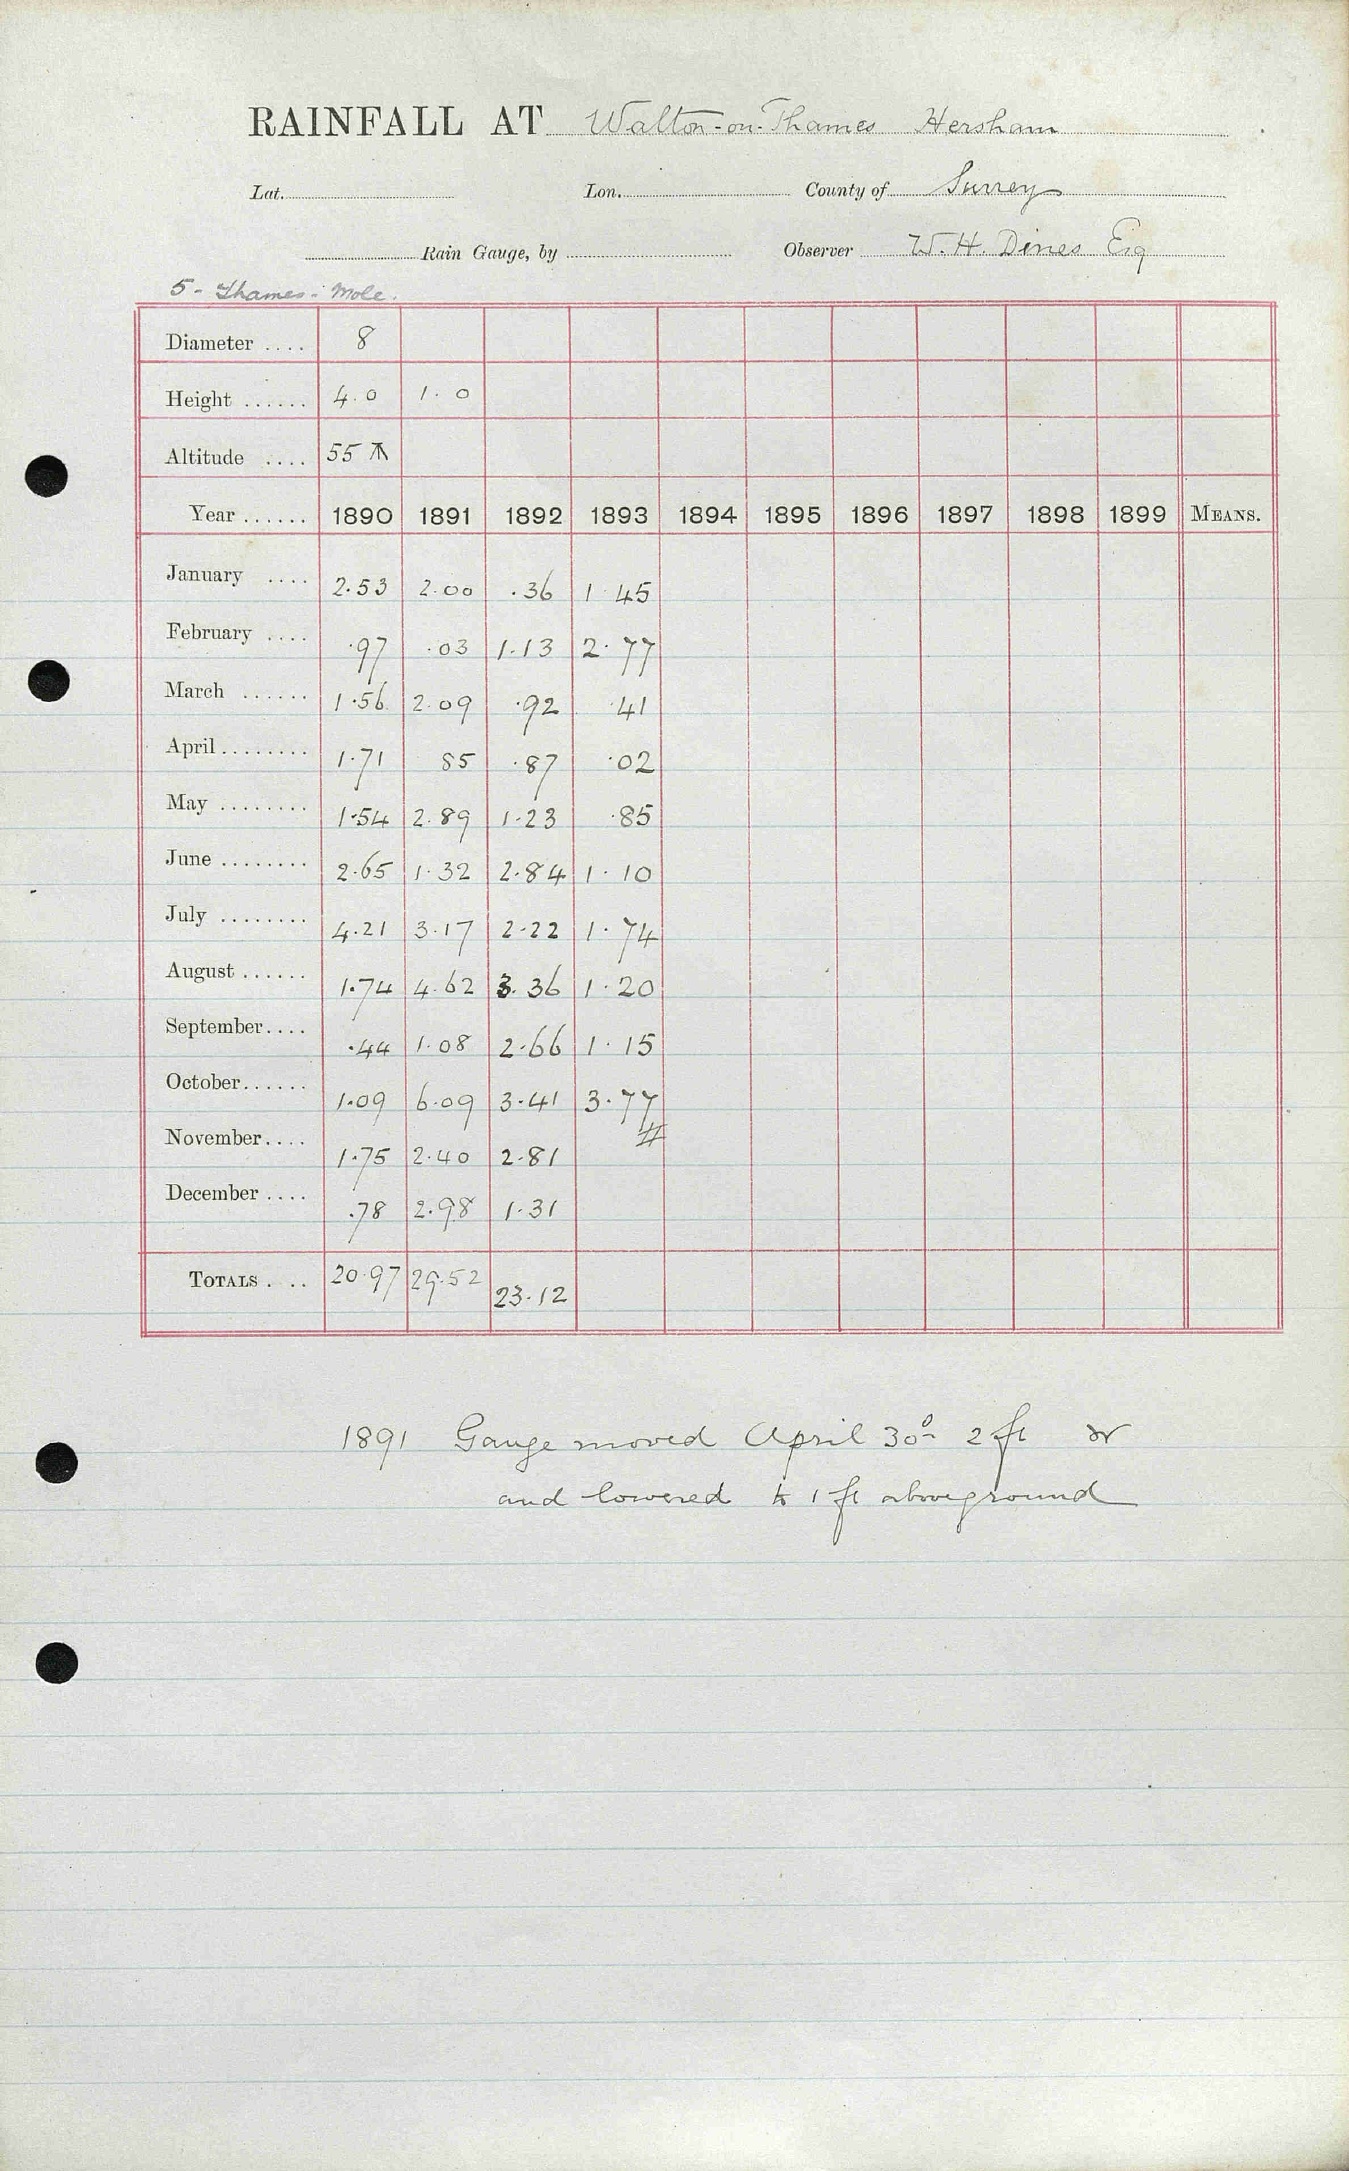 RAINFALL AT Walton-on-Thames Hersham
Lat. Lon. County of Surrey
Rain Gauge, by Observer W. H. Dines Esq
5 - Thames - Mole.
Diameter .... 8
Height ...... 4.0 1.0
Altitude .... 55
Year ...... 1890 1891 1892 1893 1894 1895 1896 1897 1898 1899 MEANS.
January .... 2.53 2.00 .36 1 45
February .... .97 .03 1.13 2.77
March ...... 1.56 2.09 .92 .41
April ........ 1.71 85 .87 .02
May ........ 1.54 2.89 1.23 .85
June ........ 2.65 1.32 2.84 1.10
July ........ 4.21 3.17 2.22 1.74
August ...... 1.74 4.62 3.36 1.20
September.... .44 1.08 2.66 1.15
October...... 1.09 6.09 3.41 3.77
November.... 1.75 2.40 2.81
December .... .78 2.98 1.31
TOTALS . .. 20.97 29.52 23.12
1891 Gauge moved April 30 2 ft
and lowered to 1 ft above ground